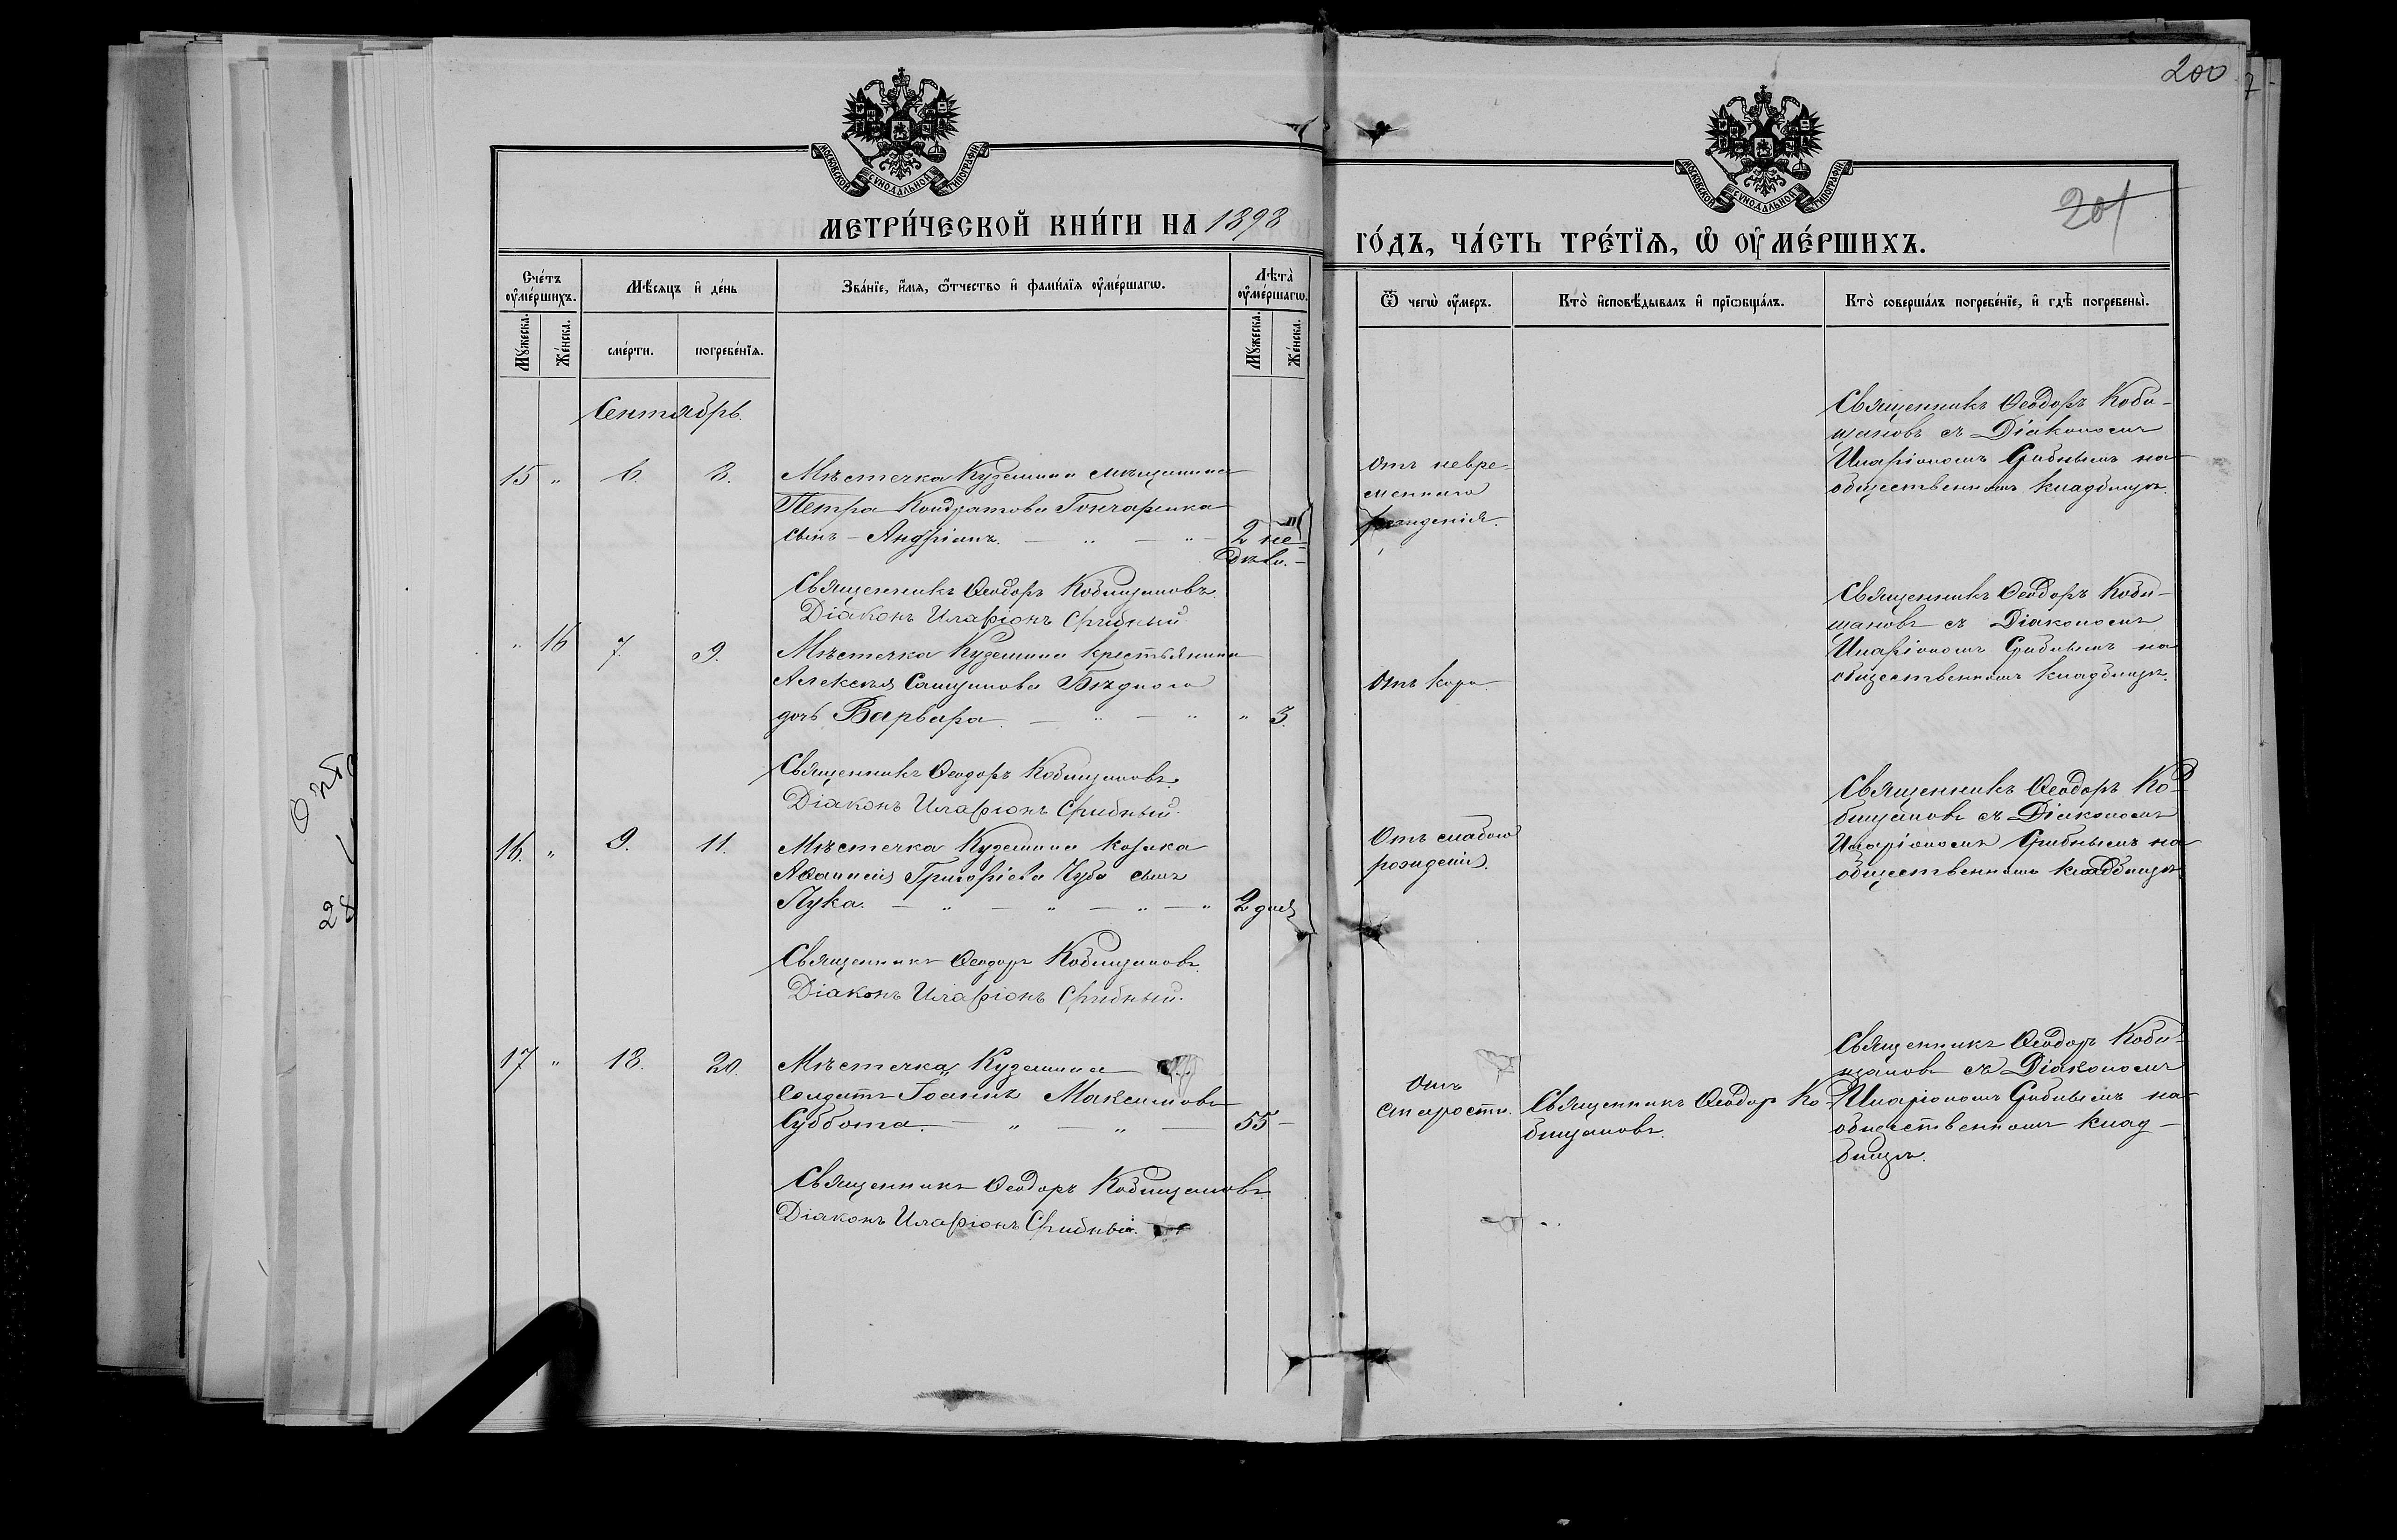 200
7
МОСКОВСКОЙ СУНОДАЛЬНОЙ ТИПОГРАФІИ
МОСКОВСКОЙ СУНОДАЛЬНОЙ ТИПОГРАФІИ
201
МЕТРИ́ЧЕСКОЙ КНИ́ГИ НА 1898
ГО́ДЪ, ЧА́СТЬ ТРЕ́ТЇѦ, Ѡ҆ ОУ҆МЕ́РШИХЪ.
Сче́тъ оу҆ме́ршихъ.
Мѣ́сяцъ и҆ де́нь
Зва́нїе, и҆́мя, ѻ҆́тчество и҆ фами́лїя оу҆ме́ршагѡ.
Лѣта̀ оу҆ме́ршагѡ.
Ѿ чегѡ̀ оу҆́меръ.
Кто̀ и҆сповѣ́дывалъ и҆ прїѡбща́лъ.
Кто̀ соверша́лъ погребе́нїе, и҆ гдѣ̀ погребены̀.
Мꙋ́жеска.
Же́нска.
сме́рти.
погребе́нїя.
Мꙋ́жеска.
Же́нска.
Сентябрь.
15 „ 6. 8.
Мѣстечка Куземина мѣщанина
Петра Кондратова Гончаренка
сынъ – Андріанъ. — „ — „ —
2 не-
дѣли.
Отъ невре-
меннаго
рожденія.
Священникъ Ѳеодоръ Коби-
щановъ съ Діакономъ
Иларіономъ Срибнымъ на
общественномъ кладбищѣ.
Священникъ Ѳеодоръ Кобищановъ.
Діаконъ Иларіонъ Срибный
„ 16 7. 9.
Мѣстечка Куземина крестьянина
Алексѣя Бѣдного
дочь Варвара. — „ — „
„ 3.
Отъ кора.
Священникъ Ѳеодоръ Коби-
щановъ съ Діакономъ
Иларіономъ Срибнымъ на
общественномъ кладбищѣ.
Священникъ Ѳеодоръ Кобищановъ.
Діаконъ Иларіонъ Срибный.
16. „ 9. 11.
Мѣстечка Куземина козака
Аѳанасія Григоріева Чуба сынъ
Лука. — „ — „ — „ — „
2 дня
Отъ слабого
рожденія.
Священникъ Ѳеодоръ Ко-
бищановъ съ Діакономъ
Иларіономъ Срибнымъ на
общественномъ кладбищѣ.
Священникъ Ѳеодоръ Кобищановъ.
Діаконъ Иларіонъ Срибный.
17 „ 18. 20.
Мѣстечка Куземина
Солдатъ Іоаннъ Максимовъ
Суббота. — „ — „ —
55 –
Отъ
старости.
Священникъ Ѳеодоръ Ко-
бищановъ.
Священникъ Ѳеодоръ Коби-
щановъ съ Діакономъ
Иларіономъ Срибнымъ на
общественномъ клад-
бищѣ.
Священникъ Ѳеодоръ Кобищановъ.
Діаконъ Иларіонъ Срибный.
28